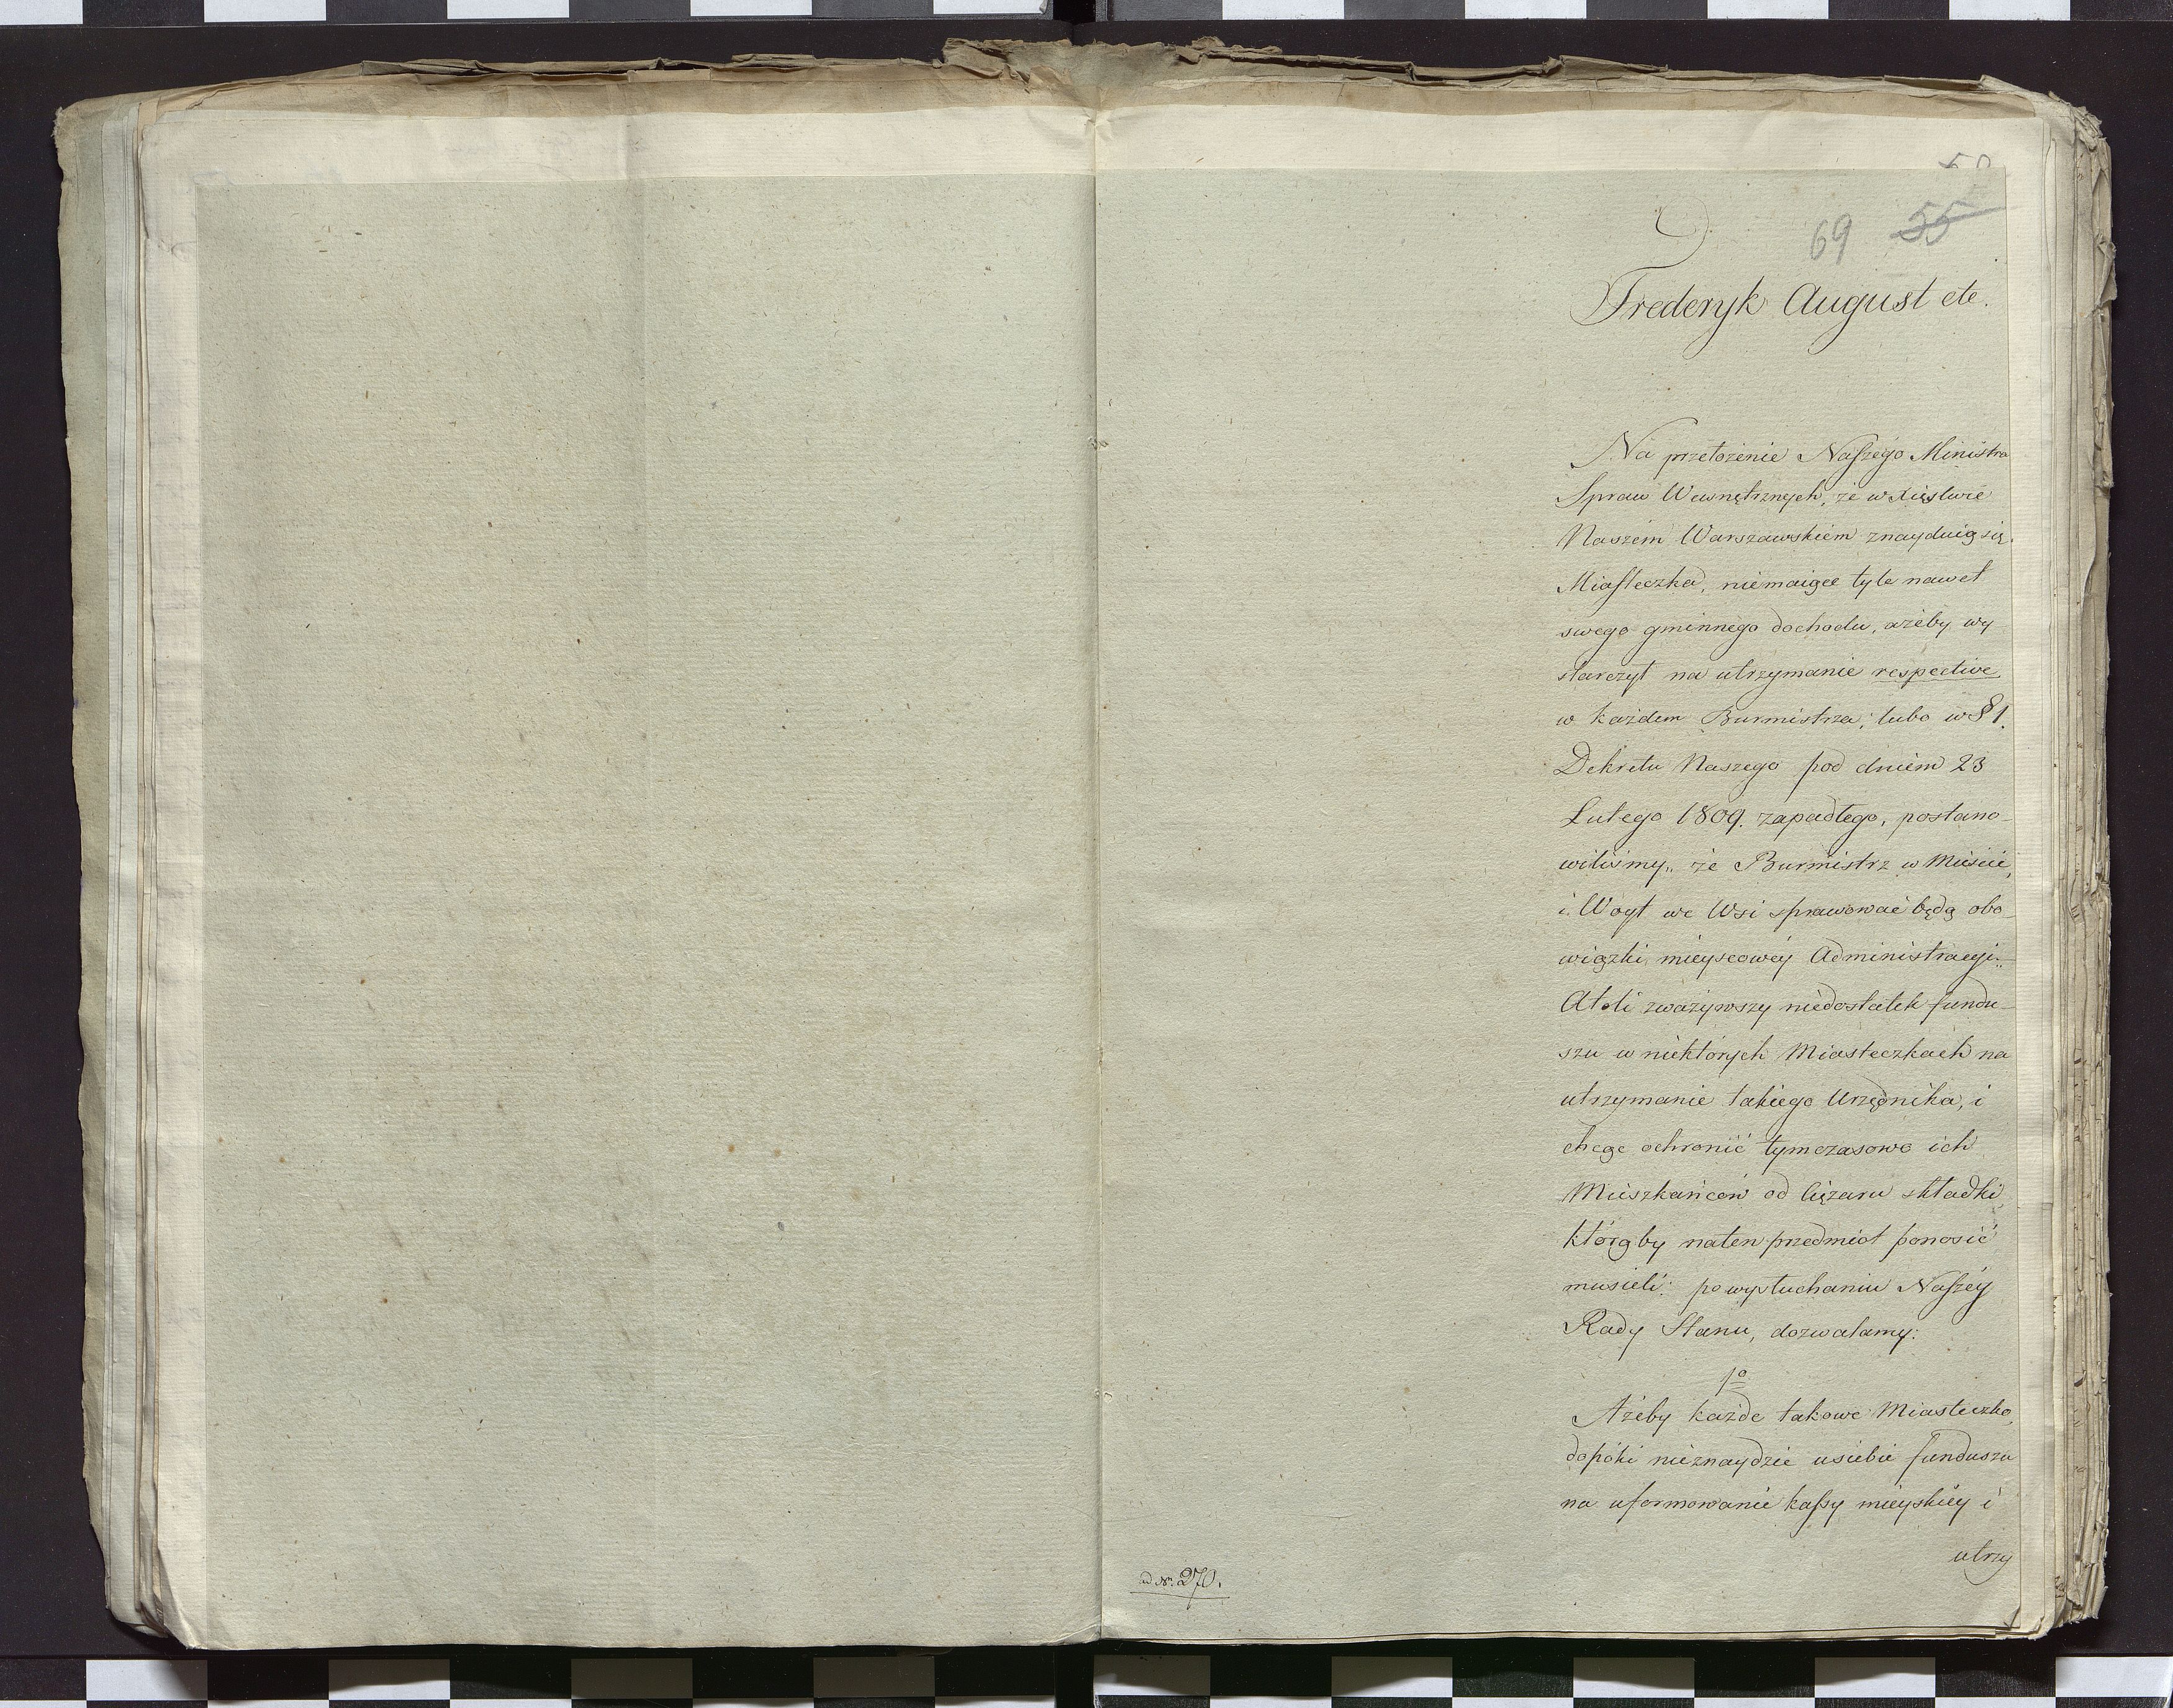 50
69 55
Frederyk August etc.
Na przełożenie Naszego Ministra
Spraw Wewnętrznych, że w Xięstwie
Naszém Warszawskiém znayduią się
Miasteczka, niemaiące tyle nawet
swego gminnego dochodu, ażeby wy
starczył na utrzymanie respective
w każdem Burmistrza; lubo w § 1.
Dekretu Naszego pod dniem 23
Lutego 1809. zapadłego, postano-
wiliśmy „ że Burmistrz w Mieście,
i Woyt we Wsi sprawować będą obo-
wiązki mieyscowéy Administracyi „
Atoli zważywszy niedostatek fundu-
szu w niektórych Miasteczkach na
utrzymanie takiego Urzędnika, i
chcąc ochronić tymczasowo ich
Mieszkańców od ciężaru składki,
którąby naten przedmiot ponosić
musieli: po wysłuchaniu Naszéy
Rady Stanu, dozwalamy:
1o
Ażeby każde takowe Miasteczko,
dopóki nieznaydzie u siebie funduszu
na uformowanie kassy mieyskiéy i
utrzy
ad Nr. 270.